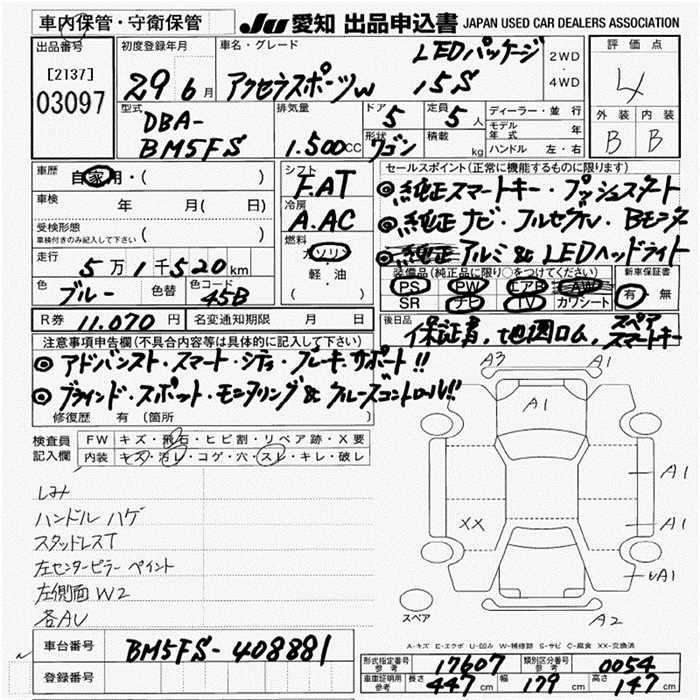 車内保管・守衛保管
JU 愛知 出品申込書 JAPAN USED CAR DEALERS ASSOCIATION
出品番号
[2137]
03097
初度登録年月
29 6月
車名・グレード
LEDパッケージ
アクセラスポーツW 15S
2WD
・
4WD
評価点
4
外装 内装
B B
型式
DBA-
BM5FS
排気量
1.500CC
ドア
5
定員
5人
形状
ワゴン
積載
kg
ディーラー・並行
モデル年式 年
ハンドル 左・右
車歴
自家用・( )
車検
年 月( 日)
受検形態
車検付きのみ記入して下さい ( )
走行
5万1千520km
色
ブルー
色替
色コード
45B
シフト
F.AT
冷房
A.AC
燃料
ガソリン
・
軽・油
( )
セールスポイント(正常に機能するものに限ります)
◎純正スマートキー・プッシュスタート
◎純正ナビ・フルセグTV・Bモニタ
◎純正アルミ&LEDヘッドライト
装備品(純正品に限り○をつけてください)
PS PW エアB AW
SR ナビ TV カワシート
新車保証書
有・無
R券 11.070円
名変通知期限 月 日
後日品
保証書、地図ROM、スペアスマートキー
注意事項申告欄(不具合内容等は具体的に記入して下さい)
◎アドバンスト・スマート・シティ・ブレーキ・サポート!!
◎ブラインド・スポット・モニタリング&クルーズコントロール!!
修復歴 有(箇所 )
検査員
記入欄
FW キズ・飛石・ヒビ割・リペア跡・X要
内装 キズ・汚レ・コゲ・穴・スレ・キレ・破レ
しみ
ハンドル ハゲ
スタッドレスT
左センターピラー ペイント
左側面 W2
各AU
A3
A1
A1
A1
A1
XX
UA1
A2
スペア
A-キズ E-エクボ U-凹み W-補修跡 S-サビ C-腐食 XX-交換済
車台番号 BM5FS-408881
登録番号
形式指定番号
参考 17607
類別区分番号
参考 0054
車庫証明用
参考 長さ 447cm 幅 179cm 高さ 147cm